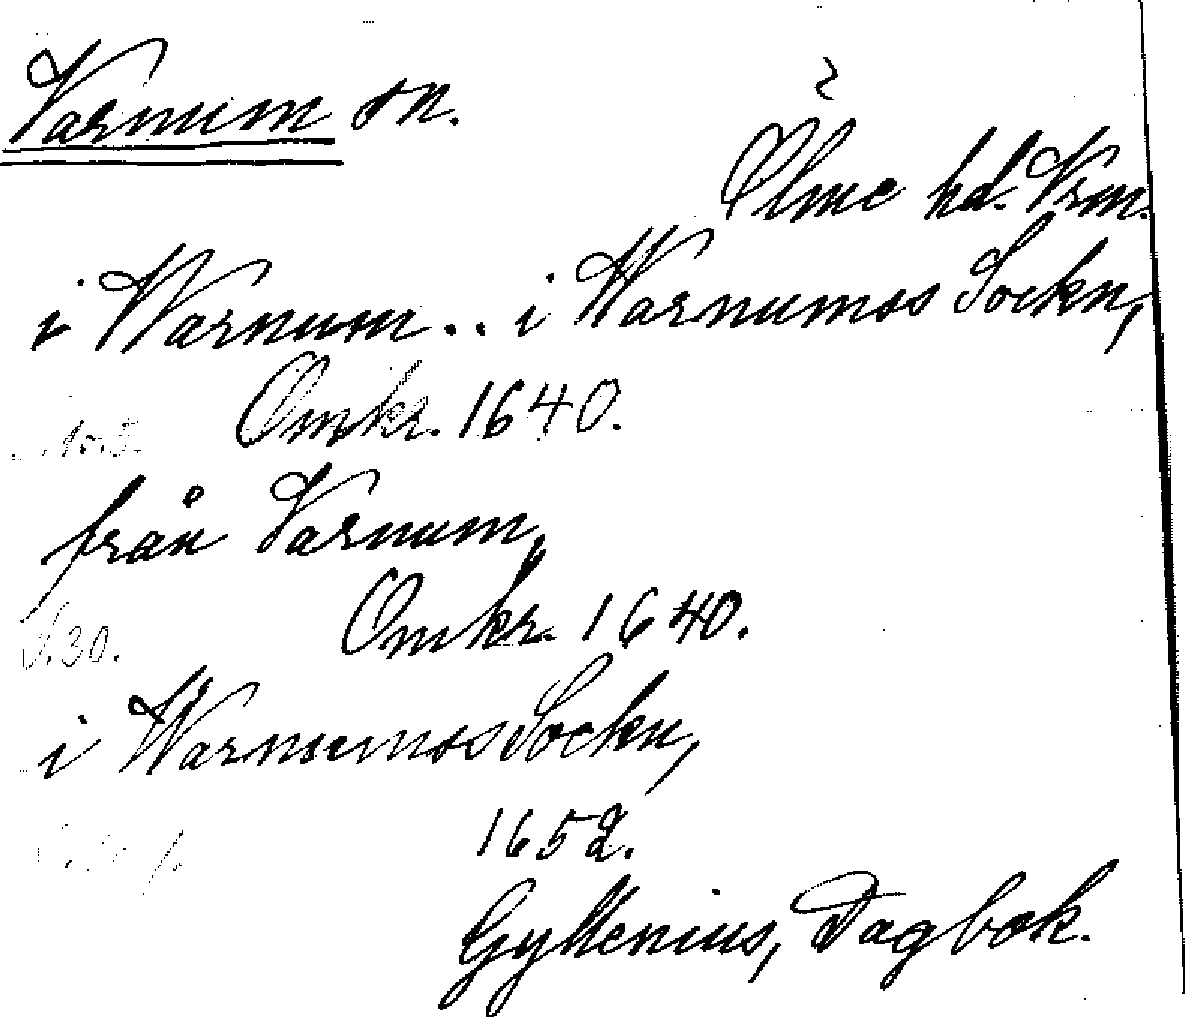 Varnum sn.
Ölme hd. Vrm.
i Warnum.. i Warnumss Sockn,
Omkr. 1640.
från Varnum,
Omkr. 1640.
S. 30.
i Warnumss Sockn,
1652.
Gyllenius, Dagbok.